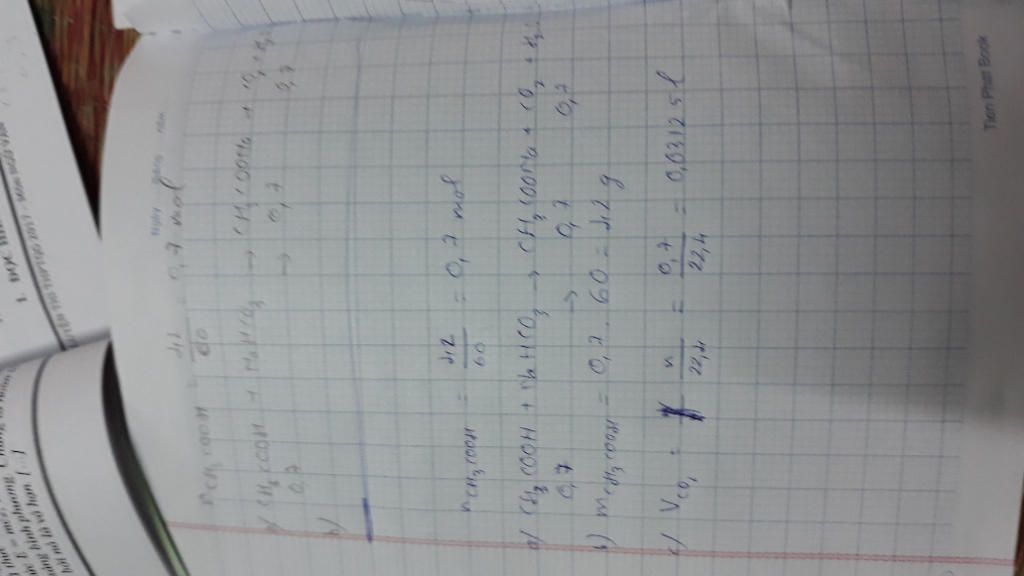 Ngày tháng năm
nCH₃COOH = 42/60 = 0,7 mol
a) CH₃COOH + NaHCO₃ → CH₃COONa + CO₂ + H₂
0,7 → 0,7 0,7
b)
nCH₃COOH = 42/60 = 0,7 mol
a) CH₃COOH + NaHCO₃ → CH₃COONa + CO₂ + H₂
0,7 → 0,7 0,7
b) mCH₃COOH = 0,7 . 60 = 42 g
c) VCO₂ = n/22,4 = 0,7/22,4 = 0,03125 l
Tien Phat Book